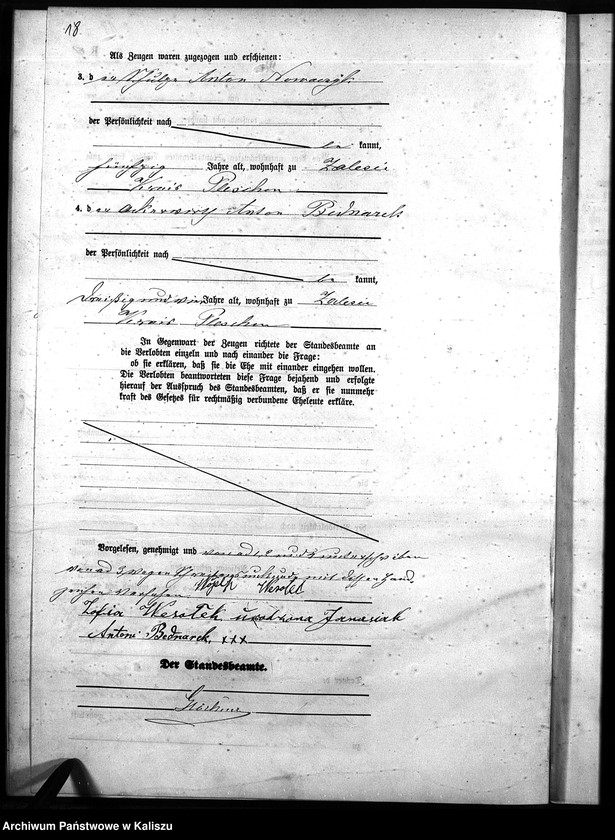 18.
Als Zeugen waren zugezogen und erschienen:
3. der Schulze Anton Nowacki
der Persönlichkeit nach
be kannt,
fünfzig Jahre alt, wohnhaft zu Zalesie
Kreis Pleschen
4. der Ackerwirth Anton Bednarek
der Persönlichkeit nach
be kannt,
dreißig und vier Jahre alt, wohnhaft zu Zalesie
Kreis Pleschen
In Gegenwart der Zeugen richtete der Standesbeamte an
die Verlobten einzeln und nach einander die Frage:
ob sie erklären, daß sie die Ehe mit einander eingehen wollen.
Die Verlobten beantworteten diese Frage bejahend und erfolgte
hierauf der Ausspruch des Standesbeamten, daß er sie nunmehr
kraft des Gesetzes für rechtmäßig verbundene Eheleute erkläre.
Vorgelesen, genehmigt und von ad 1, 2 und 4 unterschrieben
von ad 3 wegen Schreibensunkunde mit dessen Hand-
zeichen versehen. Wesołek
Zofia Wesołek urodzona Janasiak
Antoni Bednarek, xxx
Der Standesbeamte.
Archiwum Państwowe w Kaliszu